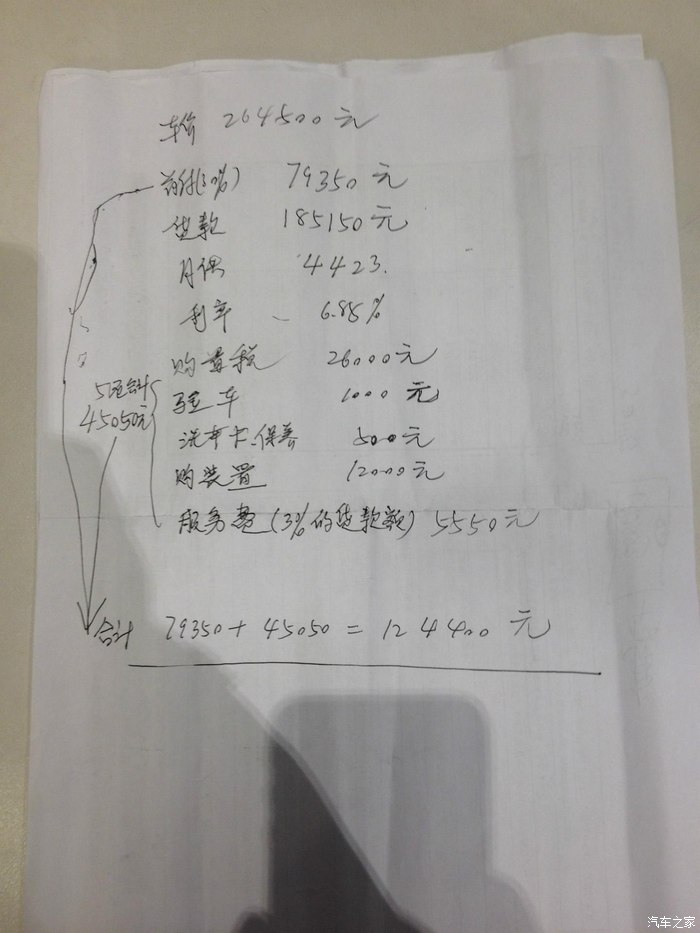 车价 264500元
首付(30%) 79350元
贷款 185150元
月供 4423.
利率 6.85%
购置税 26000元
5项合计
45050元
验车 1000元
洗车卡.保养 5000元
购装置 12000元
服务费(3%的贷款额) 5550元
合计 79350+45050=124400元
汽车之家